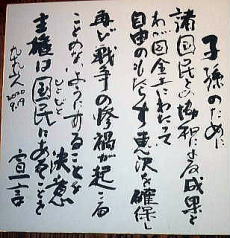 子孫のために
諸国民との協和による成果と
わが国全土にわたって
自由のもたらす恵沢を確保し
再び戦争の惨禍が起こる
ことのないようにすることを
決意
主権は国民にあることを
宣言